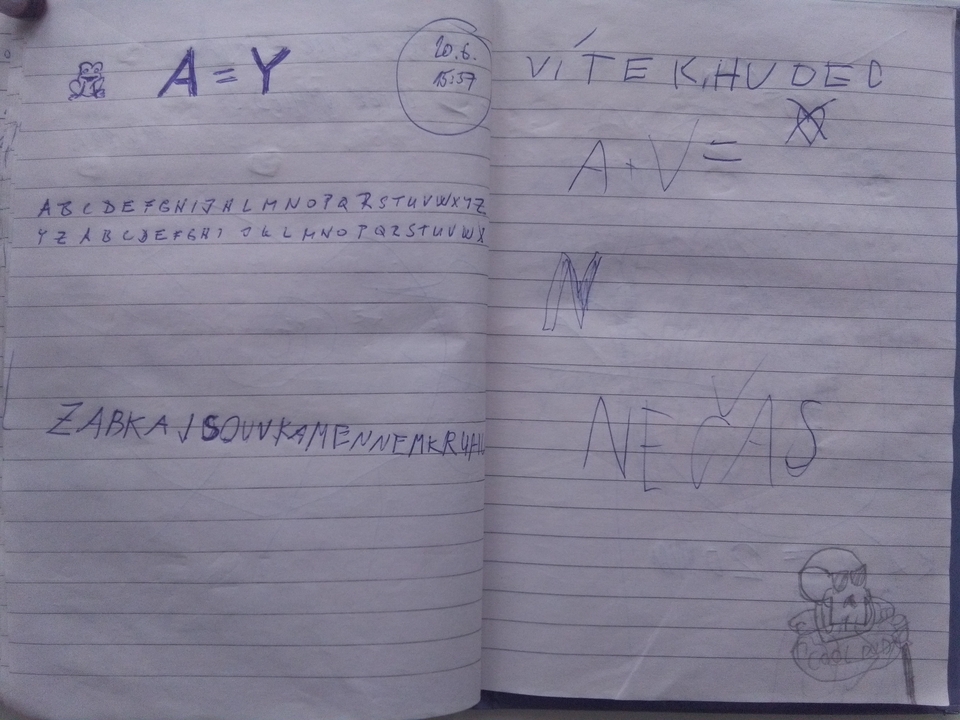 A = Y
20.6.
15:57
A B C D E F G H I J K L M N O P Q R S T U V W X Y Z
Y Z A B C D E F G H I J K L M N O P Q R S T U V W X
ZABKAJSOUVKAMENNEMKRUHU
VÍTEK,HUDEC
A + V =
N
NEČAS
COOL DUDE